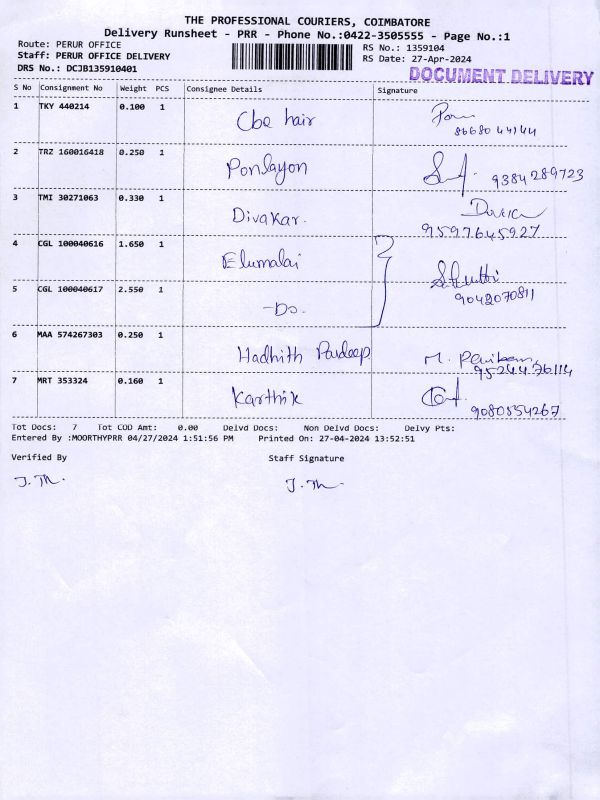 THE PROFESSIONAL COURIERS, COIMBATORE
Delivery Runsheet - PRR - Phone No.:0422-3505555 - Page No.:1
Route: PERUR OFFICE
RS No.: 1359104
Staff: PERUR OFFICE DELIVERY
RS Date: 27-Apr-2024
DRS No.: DCJB135910401
DOCUMENT DELIVERY
S No Consignment No Weight PCS Consignee Details Signature
1 TKY 440214 0.100 1 Cbe hair
8668044144
2 TRZ 160016418 0.250 1 Ponlayon
9384289723
3 TMI 30271063 0.330 1 Divakar.
9597645927
4 CGL 100040616 1.650 1 Elumalai
5 CGL 100040617 2.550 1 -Do.
9042070811
6 MAA 574267303 0.250 1 Hadhith Pardeep M.
7 MRT 353324 0.160 1 Karthik
9080554267
Tot Docs: 7 Tot COD Amt: 0.00 Delvd Docs: Non Delvd Docs: Delvy Pts:
Entered By :MOORTHYPRR 04/27/2024 1:51:56 PM Printed On: 27-04-2024 13:52:51
Verified By Staff Signature
J. Th. J. Th.